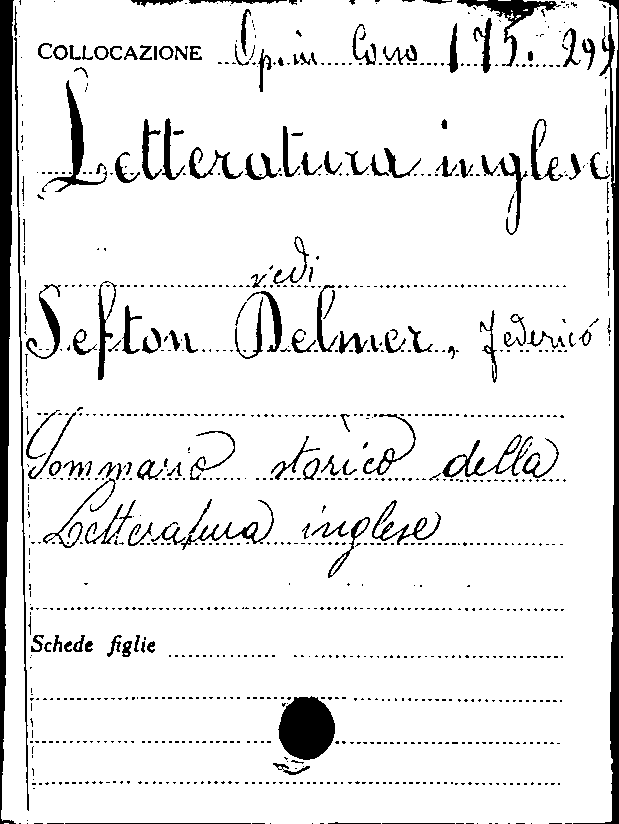 COLLOCAZIONE Op. in Corso 175. 299
Letteratura inglese
vedi
Sefton Delmer, Federico
Sommario storico della
Letteratura inglese
Schede figlie